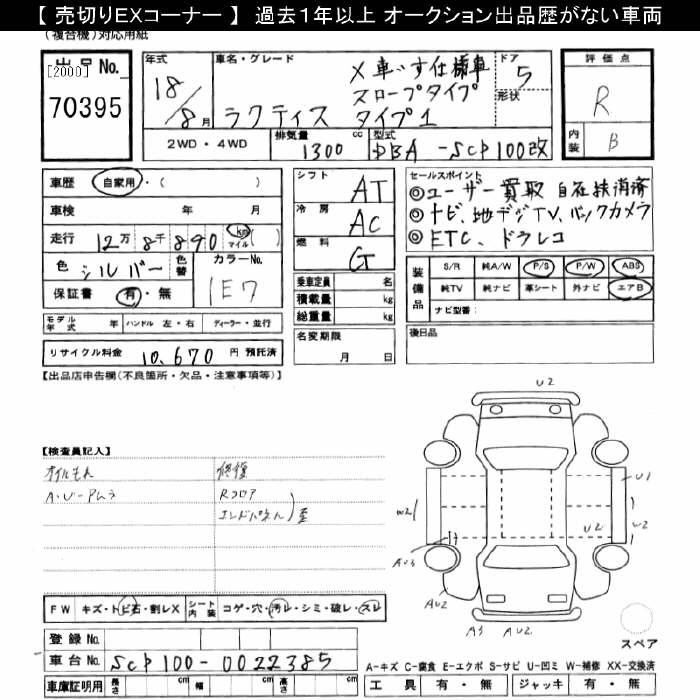 【 売切りEXコーナー 】 過去1年以上 オークション出品歴がない車両
(複合機)対応用紙
出品No.
[2000]
70395
年式
18/8月
車名・グレード
ラクティス
X 車いす仕様車
スロープタイプ
タイプ1
ドア
5
形状
評価点
R
内装
B
2WD・4WD
排気量
1300 cc
型式
DBA-SCP100改
車歴 自家用・( )
車検 年 月
走行 12万 8千 890 km マイル ( )
色 シルバー
色替
カラーNo.
1E7
保証書 有・無
モデル年式 年
ハンドル 左・右
ディーラー・並行
リサイクル料金 10,670 円 預託済
シフト AT
冷房 AC
燃料 G
乗車定員 名
積載量 kg
総重量 kg
名変期限
月 日
セールスポイント
◎ユーザー買取 自在抹消済
◎ナビ、地デジTV、バックカメラ
◎ETC、ドラレコ
装備品
S/R 純A/W P/S P/W ABS
純TV 純ナビ 革シート 外ナビ エアB
ナビ型番:
後日品
【出品店申告欄(不良箇所・欠品・注意事項等)】
【検査員記入】
オイルもれ
修復
Rフロア
エンドパネル
歪
U2
U1
W2
U2
U2
AU3
AU2
A3 AU2
FW キズ・トビ石・割レX
シート内装 コゲ・穴・汚レ・シミ・破レ・スレ
スペア
登録No.
車台No. SCP100-0022385
A-キズ C-腐食 E-エクボ S-サビ U-凹ミ W-補修 XX-交換済
車庫証明用 長さ cm 幅 cm 高さ cm
工具 有・無 ジャッキ 有・無